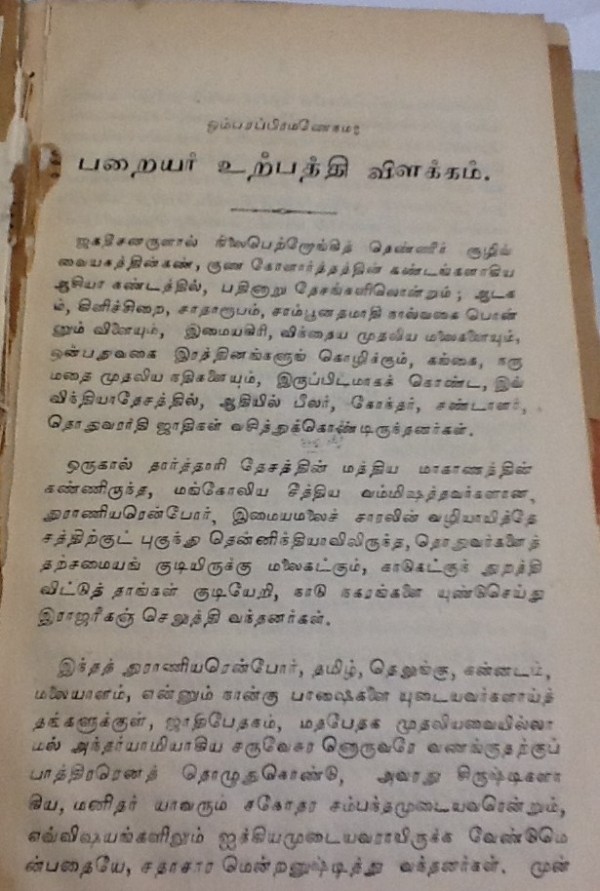 ஓம்பரப்பிரமணேநம:
பறையர் உற்பத்தி விளக்கம்.
ஜகதீசனருளால் நிலைபெற்றோங்கித் தெண்ணீர் சூழில்
வையகத்தின்கண், குண கோளார்த்தத்தின் கண்டங்களாகிய
ஆசியா கண்டத்தில், பதினாறு தேசங்களிலொன்றும்; ஆடக
ம், கிளிச்சிறை, சாதரூபம், சாம்பூனதமாதி நால்வகை பொன்
னும் விளையும், இமையகிரி, விந்தைய முதலிய மலைகளையும்,
ஒன்பதுவகை இரத்தினங்களுங் கொழிக்கும், கங்கை, நரு
மதை முதலிய நதிகளையும், இருப்பிடமாகக் கொண்ட, இவ்
விந்தியாதேசத்தில், ஆதியில் பீலர், கோந்தர், சண்டாளர்,
தொதுவராதி ஜாதிகள் வசித்துக்கொண்டிருந்தனர்கள்.
ஒருகால் தார்த்தாரி தேசத்தின் மத்திய மாகாணத்தின்
கண்ணிருந்த, மங்கோலிய சீத்திய வம்மிஷத்தவர்களான,
துராணியரென்போர், இமையமலைச் சாரலின் வழியாயித்தே
சத்திற்குட் புகுந்து தென்னிந்தியாவிலிருந்த, தொதுவர்களைத்
தற்சமையங் குடியிருக்கு மலைகட்கும், காடுகட்குந் துறத்தி
விட்டுத் தாங்கள் குடியேறி, காடு நகரங்களை யுண்டுசெய்து
இராஜரீகஞ் செலுத்தி வந்தனர்கள்.
இந்தத் துராணியரென்போர், தமிழ், தெலுங்கு, கன்னடம்,
மலையாளம், என்னும் நான்கு பாஷைகளை யுடையவர்களாய்த்
தங்களுக்குள், ஜாதிபேதகம், மதபேதக முதலியவையில்லா
மல் அந்தர்யாமியாகிய சருவேசுர னொருவரே வணங்குதற்குப்
பாத்திரரெனத் தொழுதுகொண்டு, அவரது சிருஷ்டிகளா
கிய, மனிதர் யாவரும் சகோதர சம்பந்தமுடையவரென்றும்,
எவ்விஷயங்களிலும் ஐக்கியமுடையவராயிருக்க வேண்டுமெ
ன்பதையே, சதாசார மென்றனுஷ்டித்து வந்தனர்கள். முன்